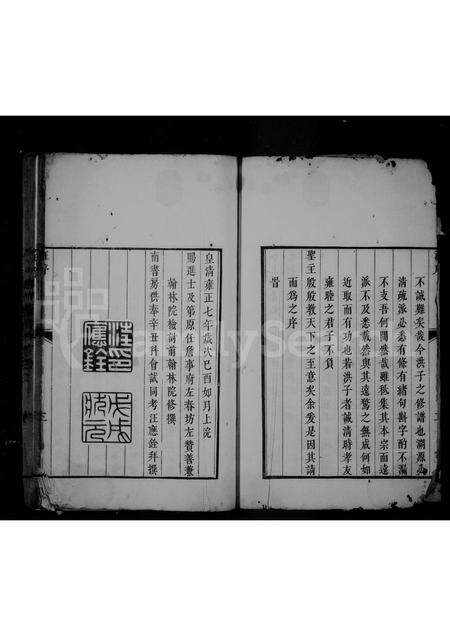 不誠難矣哉今洪子之修譜也溯源必
清疏派必悉有條有緒句斟字酌不漏
不支吾何間然哉雖秖集其本宗而遠
派不及悉載然與其遠騖之無成何如
近取而有功也若洪子者誠清時孝友
雍睦之君子不負
聖主殷殷教天下之至意矣余爰是因其請
而為之序
旹
皇清雍正七年歲次己酉如月上浣
賜進士及第原任詹事府左春坊左贊善兼
翰林院檢討前翰林院修撰
南書房供奉辛丑科會試同考汪應銓拜撰
汪印
應銓
戊戌
狀元